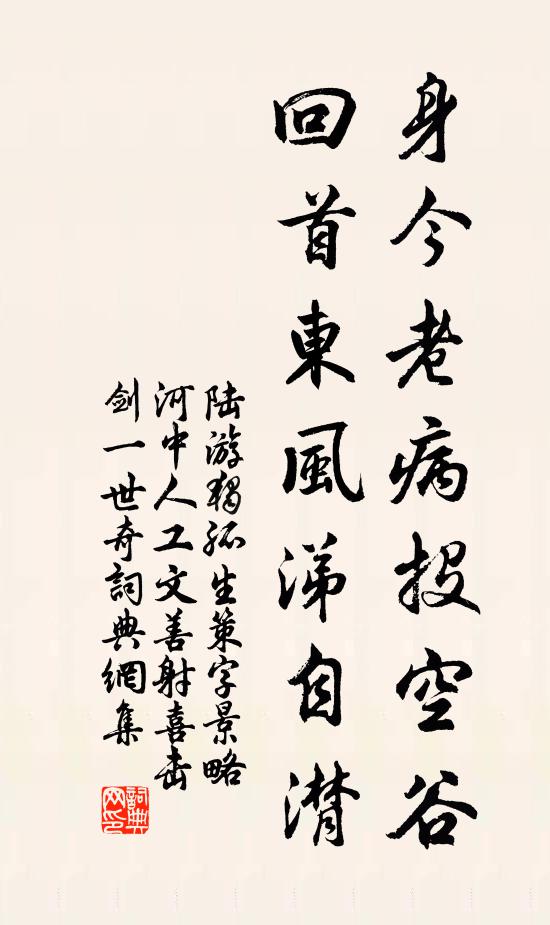 身今老病投空谷
回首東風涕自潸
陆游獨孤生策字景略
河中人工文善射喜击
劍一世奇詞典網集
詞典网印